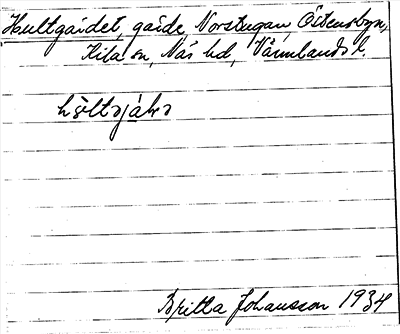 Hultgärdet, gärde, Norstugan, Östensbyn,
Kila sn, Näs hd, Värmlands l.
Britta Johansson 1934